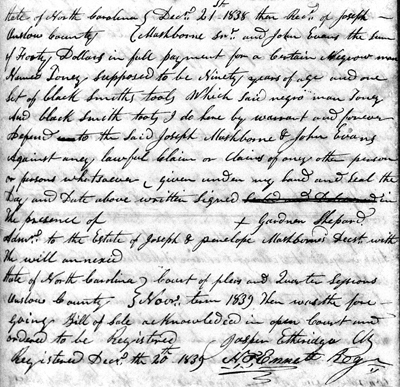 State of North Carolina } Decr. 21st 1838 then Recd. of Joseph
Onslow County { Mashborne Snr. and John Evans the sum
of Forty Dollars in full payment for a Certain Negrow man
Named Toney supposed to be Ninety years of age and one
Set of black Smiths tools Which Said negro man Toney
And black Smith tools I do here by warrant and forever
Defend to the said Joseph Mashborne & John Evans
Against aney lawful Claim or claims of any other person
or persons whatsoever given under my hand and Seal the
Day and Date above written Signed in
the presence of + Gardner Shepard
Admr. to the Estate of Joseph & penelope Mashborne Decst. with
the will annexed
State of North Carolina } Court of pleas and Quarter Sessions
Onslow County } Novr. term 1839 Then was the fore
going Bill of Sale acknowledged in open Court and
ordered to be Registered Jasper Ethridge Clk
Registered Decr. the 20th 1839